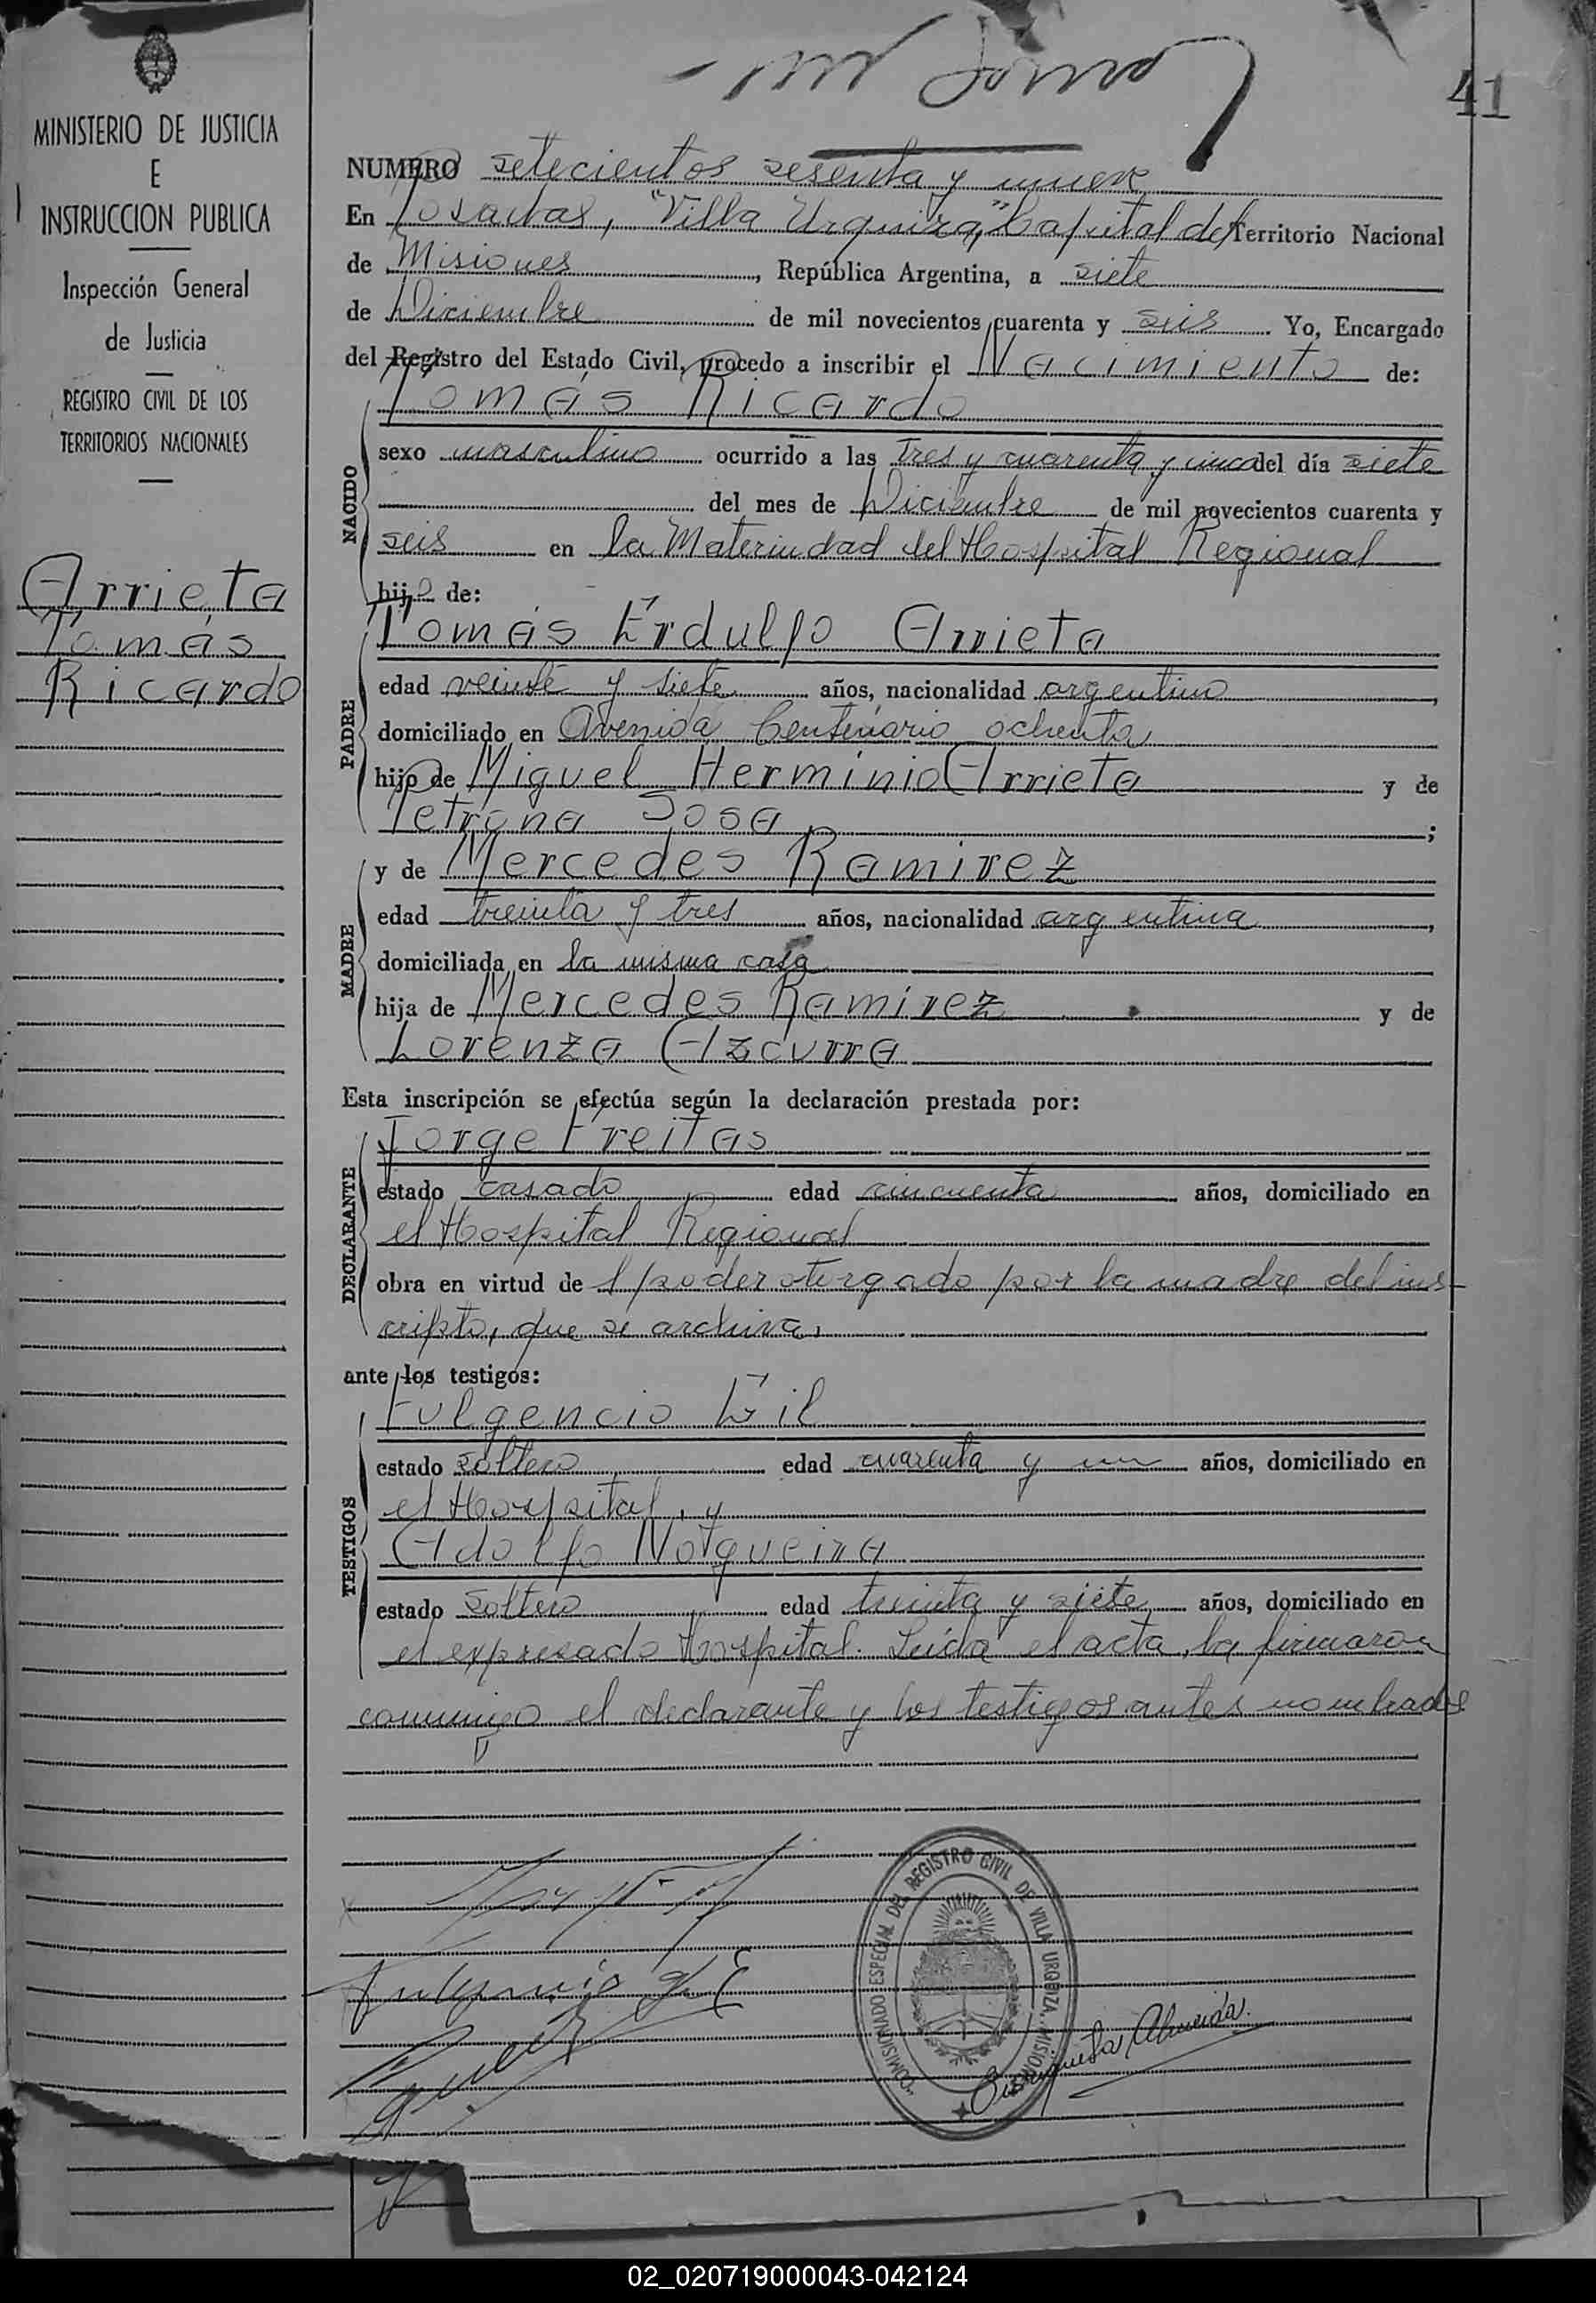 41
MINISTERIO DE JUSTICIA
E
INSTRUCCION PUBLICA
Inspección General
de Justicia
REGISTRO CIVIL DE LOS
TERRITORIOS NACIONALES
Arrieta
Tomás
Ricardo
NUMERO setecientos sesenta y nueve
En Posadas, "Villa Urquiza," Capital del Territorio Nacional
de Misiones, República Argentina, a siete
de Diciembre de mil novecientos cuarenta y seis. Yo, Encargado
del Registro del Estado Civil, procedo a inscribir el Nacimiento de:
Tomás Ricardo
NACIDO
sexo masculino ocurrido a las tres y cuarenta y cinco del día siete
del mes de Diciembre de mil novecientos cuarenta y
seis en la Maternidad del Hospital Regional
hijo de:
Tomás Erdulfo Arrieta
PADRE
edad veinte y siete años, nacionalidad argentino,
domiciliado en Avenida Centenario ochenta
hijo de Miguel Herminio Arrieta y de
Petrona Sosa;
y de Mercedes Ramirez
MADRE
edad treinta y tres años, nacionalidad argentina,
domiciliada en la misma casa
hija de Mercedes Ramirez y de
Lorenza Azcurra
Esta inscripción se efectúa según la declaración prestada por:
Jorge Freitas
DECLARANTE
estado casado edad cincuenta años, domiciliado en
el Hospital Regional
obra en virtud de l poder otorgado por la madre del ins-
cripto, que se archiva,
ante los testigos:
Fulgencio Gil
TESTIGOS
estado soltero edad cuarenta y un años, domiciliado en
el Hospital, y
Adolfo Notqueira
estado soltero edad treinta y siete años, domiciliado en
el expresado Hospital. Leída el acta, la firmaron
conmigo el declarante y los testigos antes nombrados
Fulgencio Gil
COMISIONADO ESPECIAL DEL REGISTRO CIVIL DE VILLA URQUIZA, MISIONES
Almeida
02_020719000043-042124